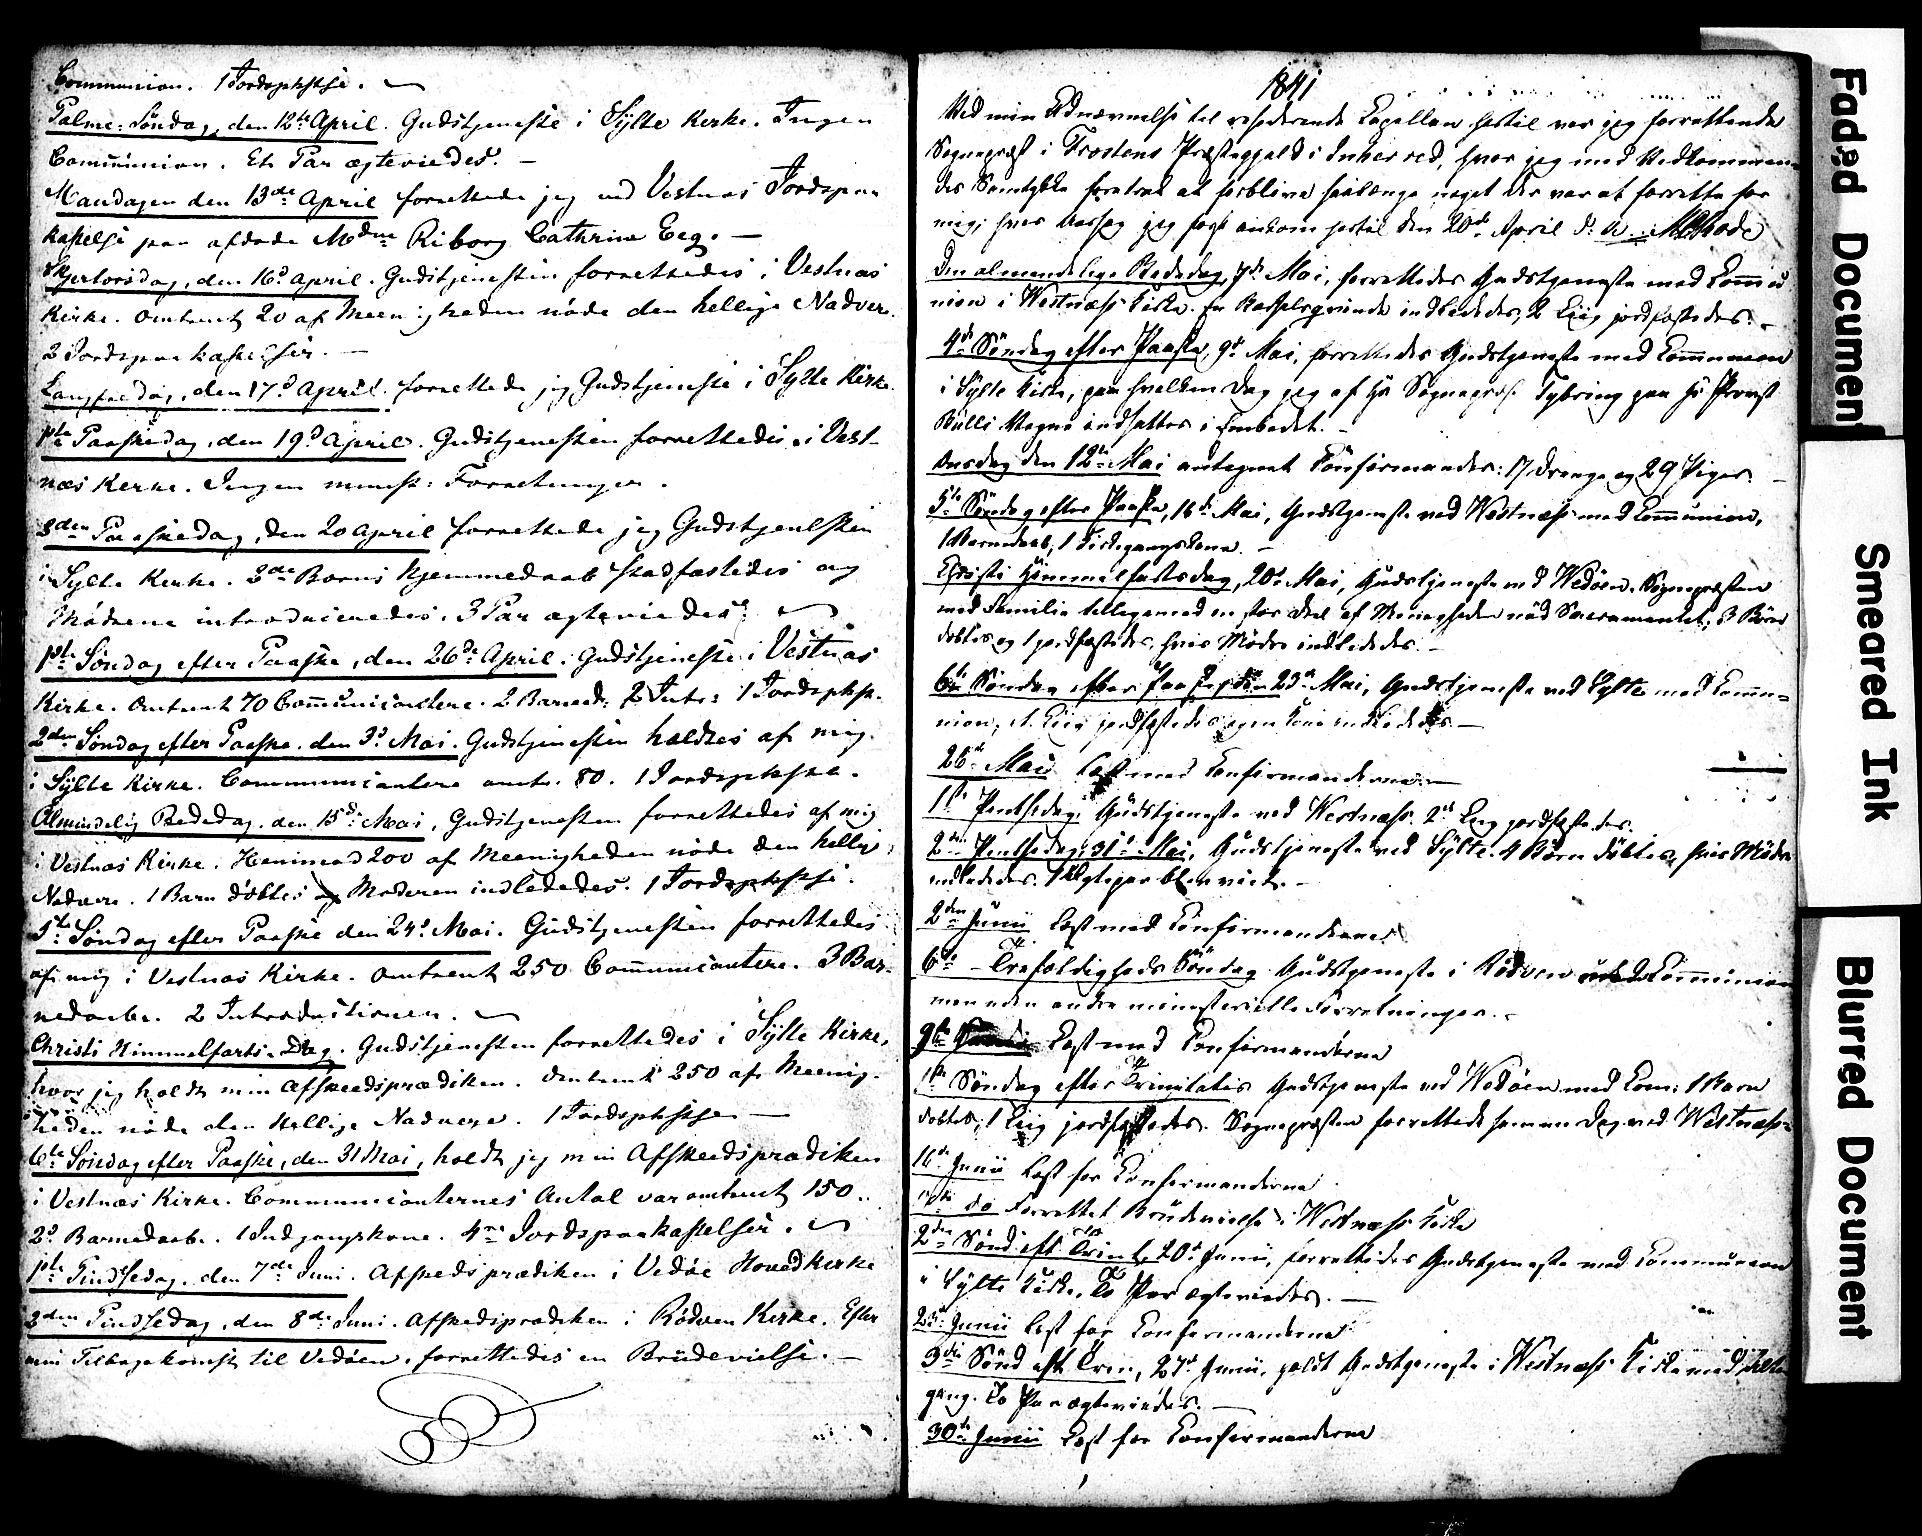 Communion. 1 Jordspkstse.
Palme-Søndag, den 12te April. Gudstjeneste i Sylte Kirke. Ingen
Communion. Et Par ægteviedes. –
Mandagen den 13de April forrettede jeg ved Vestnæs Jordspaa
kastelse paa afdøde Mdme Riborg Cathrine Eeg. –
Skjertorsdag, den 16d April. Gudstjenesten forrettedes i Vestnæs
Kirke. Omtrent 20 af Meenigheden nøde den hellige Nadver.
2 Jordspaakastelser. –
Langfredag, den 17d April. forrettede jeg Gudstjeneste i Sylte Kirke.
1ste Paaskedag, den 19d April. Gudstjenesten forrettedes i Vest-
næs Kirke. Ingen minist: Forretninger.
2den Paaskedag, den 20 April forrettede jeg Gudstjenesten
i Sylte Kirke. 2de Børns Hjemmedaab stadfæstedes og
Mødrene introduceredes. 3 Par ægteviedes.
1ste Søndag efter Paaske, den 26de April. Gudstjeneste i Vestnæs
Kirke. Omtrent 70 Communicantere. 2 Barned: 2 Intr: 1 Jordspkst.
2den Søndag efter Paaske. den 3d Mai. Gudstjenesten holdtes af mig.
i Sylte Kirke. Communicantere omtr. 80. 1 Jordspkstse.
Almindelig Bededag. den 15d Mai, Gudstjenesten forrettedes af mig
i Vestnæs Kirke. Henimod 200 af Meenigheden nøde den hellige
Nadvere. 1 Barn døbtes og Moderen indlededes. 1 Jordspkstse.
5te Søndag efter Paaske den 24d Mai. Gudstjenesten forrettedes
af mig i Vestnæs Kirke. Omtrent 250 Communicantere. 3 Bar-
nedaabe. 2 Introductioner.
Christi Himmelfarts-Dag. Gudstjenesten forrettedes i Sylte Kirke,
hvor jeg holdt min Afskeedsprædiken. Omtrent 250 af Meenig-
heden nøde den Hellige Nadvere. 1 Jordspkstse –
6te Søndag efter Paaske, den 31 Mai, holdt jeg min Afskeedsprædiken
i Vestnæs Kirke. Communicanternes Antal var omtrent 150.
2d Barnedaabe. 1 Indgangskone. 4re Jordspaakastelser.
1ste Pindsedag. den 7de Juni. Afskedsprædiken i Vedøe Hovedkirke
2den Pindsedag, den 8de Juni. Afskedsprædiken i Rødven Kirke. Efter
min Tilbagekomst til Vedøen, forrettedes en Brudevielse. –
1841
Ved min Udnævnelse til residerende Capellan hertil var jeg forrettende
Sognepræst i Frostens Præstegjeld i Inherred, hvor jeg med Vedkommen-
des Samtykke foretrak at forblive saalænge noget der var at forrette for
mig; hvor jeg først ankom hertil den 20de April d. A.
Den almindelige Bededag, 7de Mai, forrettedes Gudstjeneste med Commu
nion i Westnæs Kirke. En Barselqvinde indlededes, 2 Liig jordfæstedes. –
4de Søndag efter Paaske, 9d Mai, forrettedes Gudstjeneste med Communion
i Sylte Kirke, paa hvilken Dag jeg af Hr Sognepræst Tybring paa Hr Provst
Bulls Vegne indsattes i Embedet. –
Onsdag den 12te Mai antegnet Confirmander: 17 Drenge og 29 Piger. –
5te Søndag efter Paaske, 16de Mai, Gudstjeneste ved Westnæs med Communion,
1 Barnedaab, 1 Kirkegangskone. –
Christi Himmelfartsdag, 20de Mai, Gudstjeneste ved Wedøen. Sognepræsten
med Familie tilligemed en stor Deel af Menigheden nød Sacramentet; 3 Børn
døbtes og 1 jordfæstedes, hvis Mødre indlededes. –
6te Søndag efter Paaske, den 23de Mai, Gudstjeneste ved Sylte med Commu-
nion, et Liig jordfæstedes og en Kone indlededes. –
26de Mai Læst med Confirmanderne –
1ste Pentsedag, Gudstjeneste ved Westnæs. 2de Liig jordfæstedes.
2den Pentsedag, 31te Mai, Gudstjeneste ved Sylte. 4 Børn døbtes, hvis Mødre
indlededes. 1 Ægtepar blev viet. –
2den Junii Læst med Confirmanderne
6te – Trefoldigheds Søndag Gudstjeneste i Rødven uden Communion
men uden andre ministerielle Forretninger. –
9de Junii Læst med Confirmanderne
1ste Søndag efter Trinitatis Gudstjeneste ved Wedøen med Com: 1 Barn
døbtes, 1 Liig jordfæstedes. Sognepræsten forrettede samme Dag ved Westnæs
16de Junii Læst for Confirmanderne
do Forrettet Brudevielse i Westnæs Kirke
2den Sønd eft Trinit, 20de Junii, forrettedes Gudstjeneste med Communion
i Sylte Kirke. To Par ægteviedes. –
23de Junii Læst for Confirmanderne
3die Sønd eft Trin, 27de Junii, holdt Gudstjeneste i Westnæs Kirke med Alter
gang. To Par ægteviedes. –
30te Junii Læst for Confirmanderne
Faded Document
Smeared Ink
Blurred Document